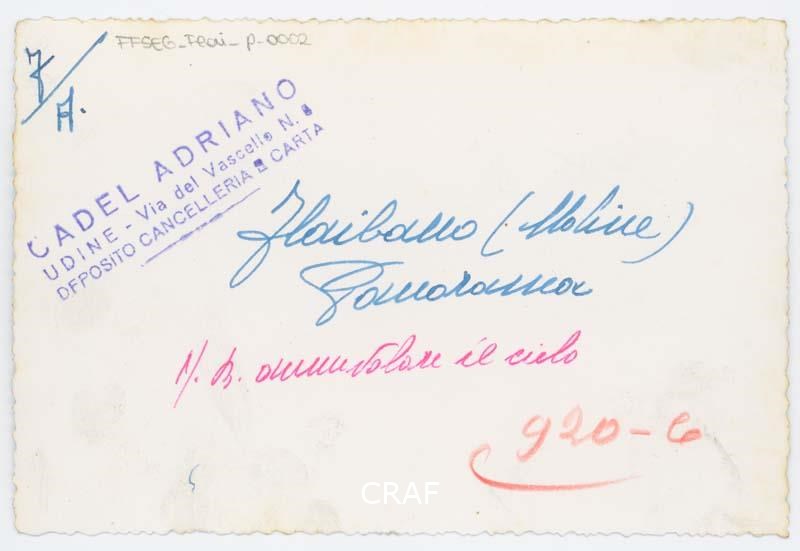 7/A.
FFSEG_Flai_P_0002
CADEL ADRIANO
UDINE - Via del Vascello N. 8
DEPOSITO CANCELLERIA E CARTA
Flaibano (Moline)
Panorama
N. B. annuvolare il cielo
920-6
CRAF